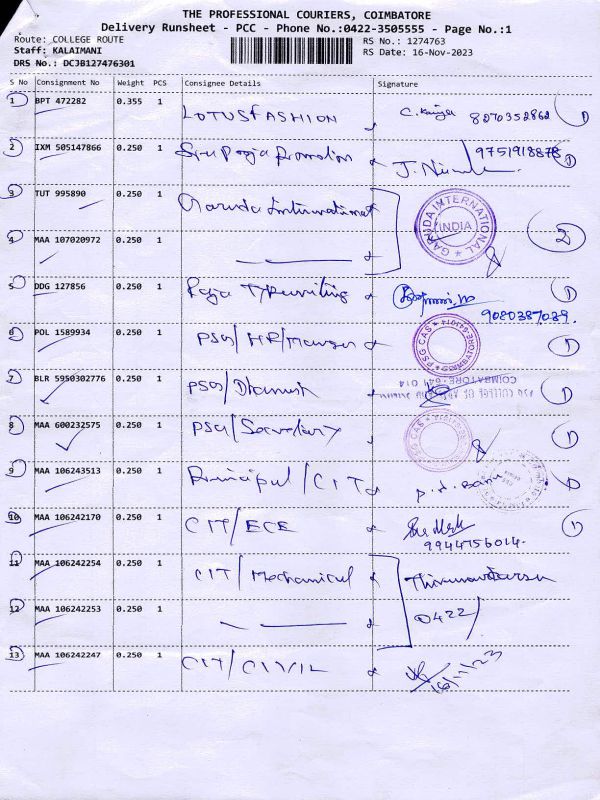 THE PROFESSIONAL COURIERS, COIMBATORE
Delivery Runsheet - PCC - Phone No.:0422-3505555 - Page No.:1
Route: COLLEGE ROUTE RS No.: 1274763
Staff: KALAIMANI RS Date: 16-Nov-2023
DRS No.: DCJB127476301
S No Consignment No Weight PCS Consignee Details Signature
1 BPT 472282 0.355 1 LOTUSFASHION 8270352862 1
2 IXM 505147866 0.250 1 Promotion 9751918878 1
3 TUT 995890 0.250 1 Garuda International GARUDA INTERNATIONAL INDIA 2
4 MAA 107020972 0.250 1
5 DDG 127856 0.250 1 Raja Typewriting 9080387039. 1
6 POL 1589934 0.250 1 PSG/HR/Manager PSG CAS COIMBATORE-641014 1
7 BLR 5950302776 0.250 1 PSG/Dhanush PSG COLLEGE OF ARTS COIMBATORE-641 014 1
8 MAA 600232575 0.250 1 PSG/Secretary PSG CAS 1
9 MAA 106243513 0.250 1 Principal/CIT 1
10 MAA 106242170 0.250 1 CIT/ECE 9944756014. 1
11 MAA 106242254 0.250 1 CIT/Mechanical
12 MAA 106242253 0.250 1 0422
13 MAA 106242247 0.250 1 CIT/CIVIL 16/11/23